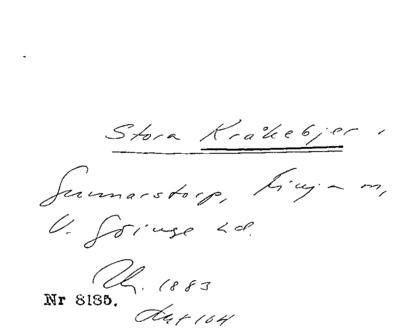 Stora Kråkebjer,
Gunnarstorp, Finja sn,
V. Göinge hd.
1883
Nr 8185.
Akt 104